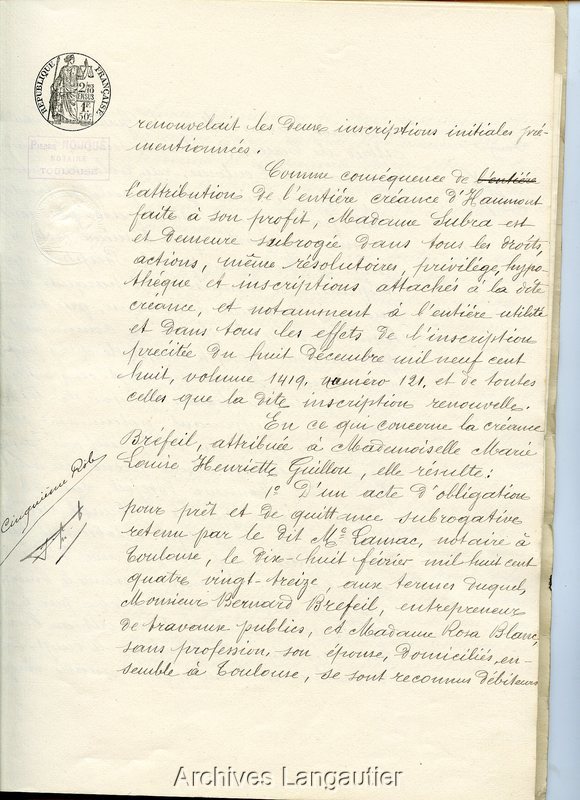 RÉPUBLIQUE FRANÇAISE
2/10 EN SUS
1f.
50c
NOTAIRE
TOULOUSE
renouvelait les deux inscriptions initiales pré-
mentionnées.
Comme conséquence de l'entière
l'attribution de l'entière créance d'Haumont
faite à son profit, Madame Subra est
et demeure subrogée dans tous les droits,
actions, même résolutoires, privilège, hypo-
thèque et inscriptions attachés à la dite
créance, et notamment à l'entière utilité
et dans tous les effets de l'inscription
précitée du huit décembre mil neuf cent
huit, volume 1419, numéro 121, et de toutes
celles que la dite inscription renouvelle.
En ce qui concerne la créance
Bréfeil, attribuée à Mademoiselle Marie
Louise Henriette Guillou, elle résulte:
1º D'un acte d'obligation
pour prêt et de quittance subrogative
retenu par le dit Me Lansac, notaire à
Toulouse, le dix-huit février mil huit cent
quatre vingt-treize, aux termes duquel,
Monsieur Bernard Bréfeil, entrepreneur
de travaux publics, et Madame Rosa Blanc,
sans profession, son épouse, domiciliés en-
semble à Toulouse, se sont reconnus débiteurs
Cinquième Rôle
Archives Langautier